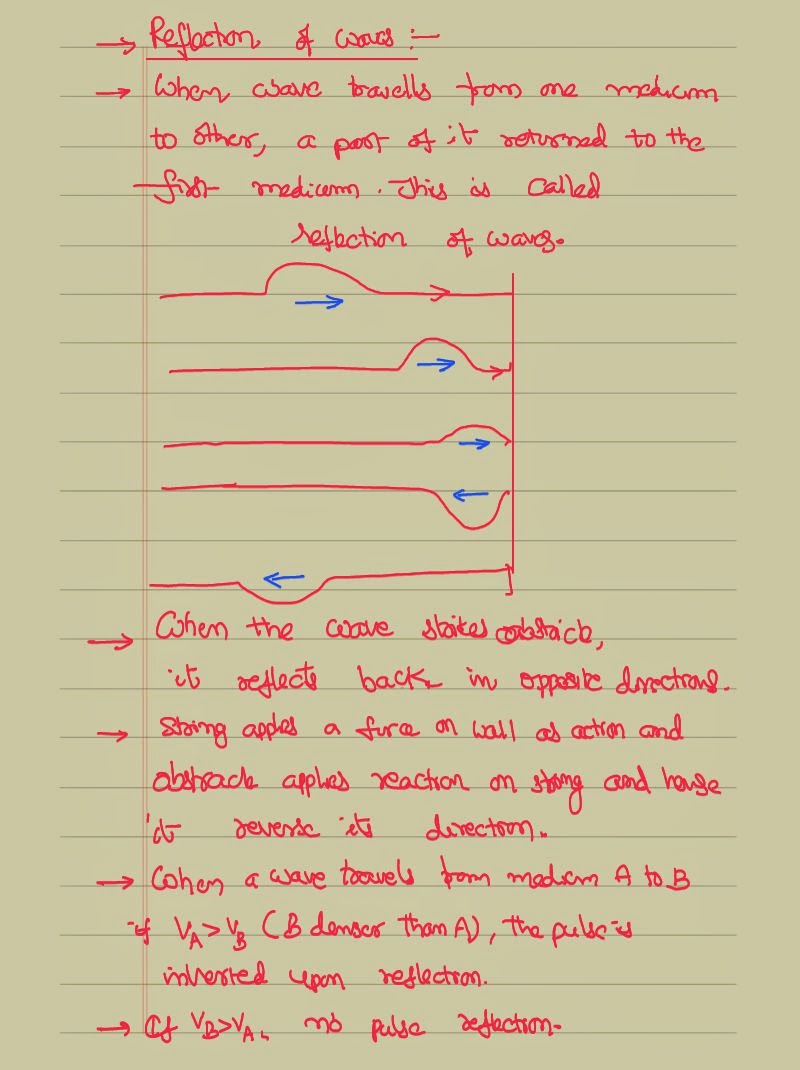 → Reflection of waves :-
→ When wave travells from one medium
to other, a part of it returned to the
first medium. This is called
reflection of waves.
→ When the wave strikes obstrick,
it reflects back in opposite directions.
→ String apples a furce on wall as action and
obstrack applies reaction on string and hense
it reverse its direction.
→ When a wave travels from medium A to B
if VA>VB (B denser than A), the pulse is
inverted upon reflection.
→ If VB>VA, no pulse reflection.